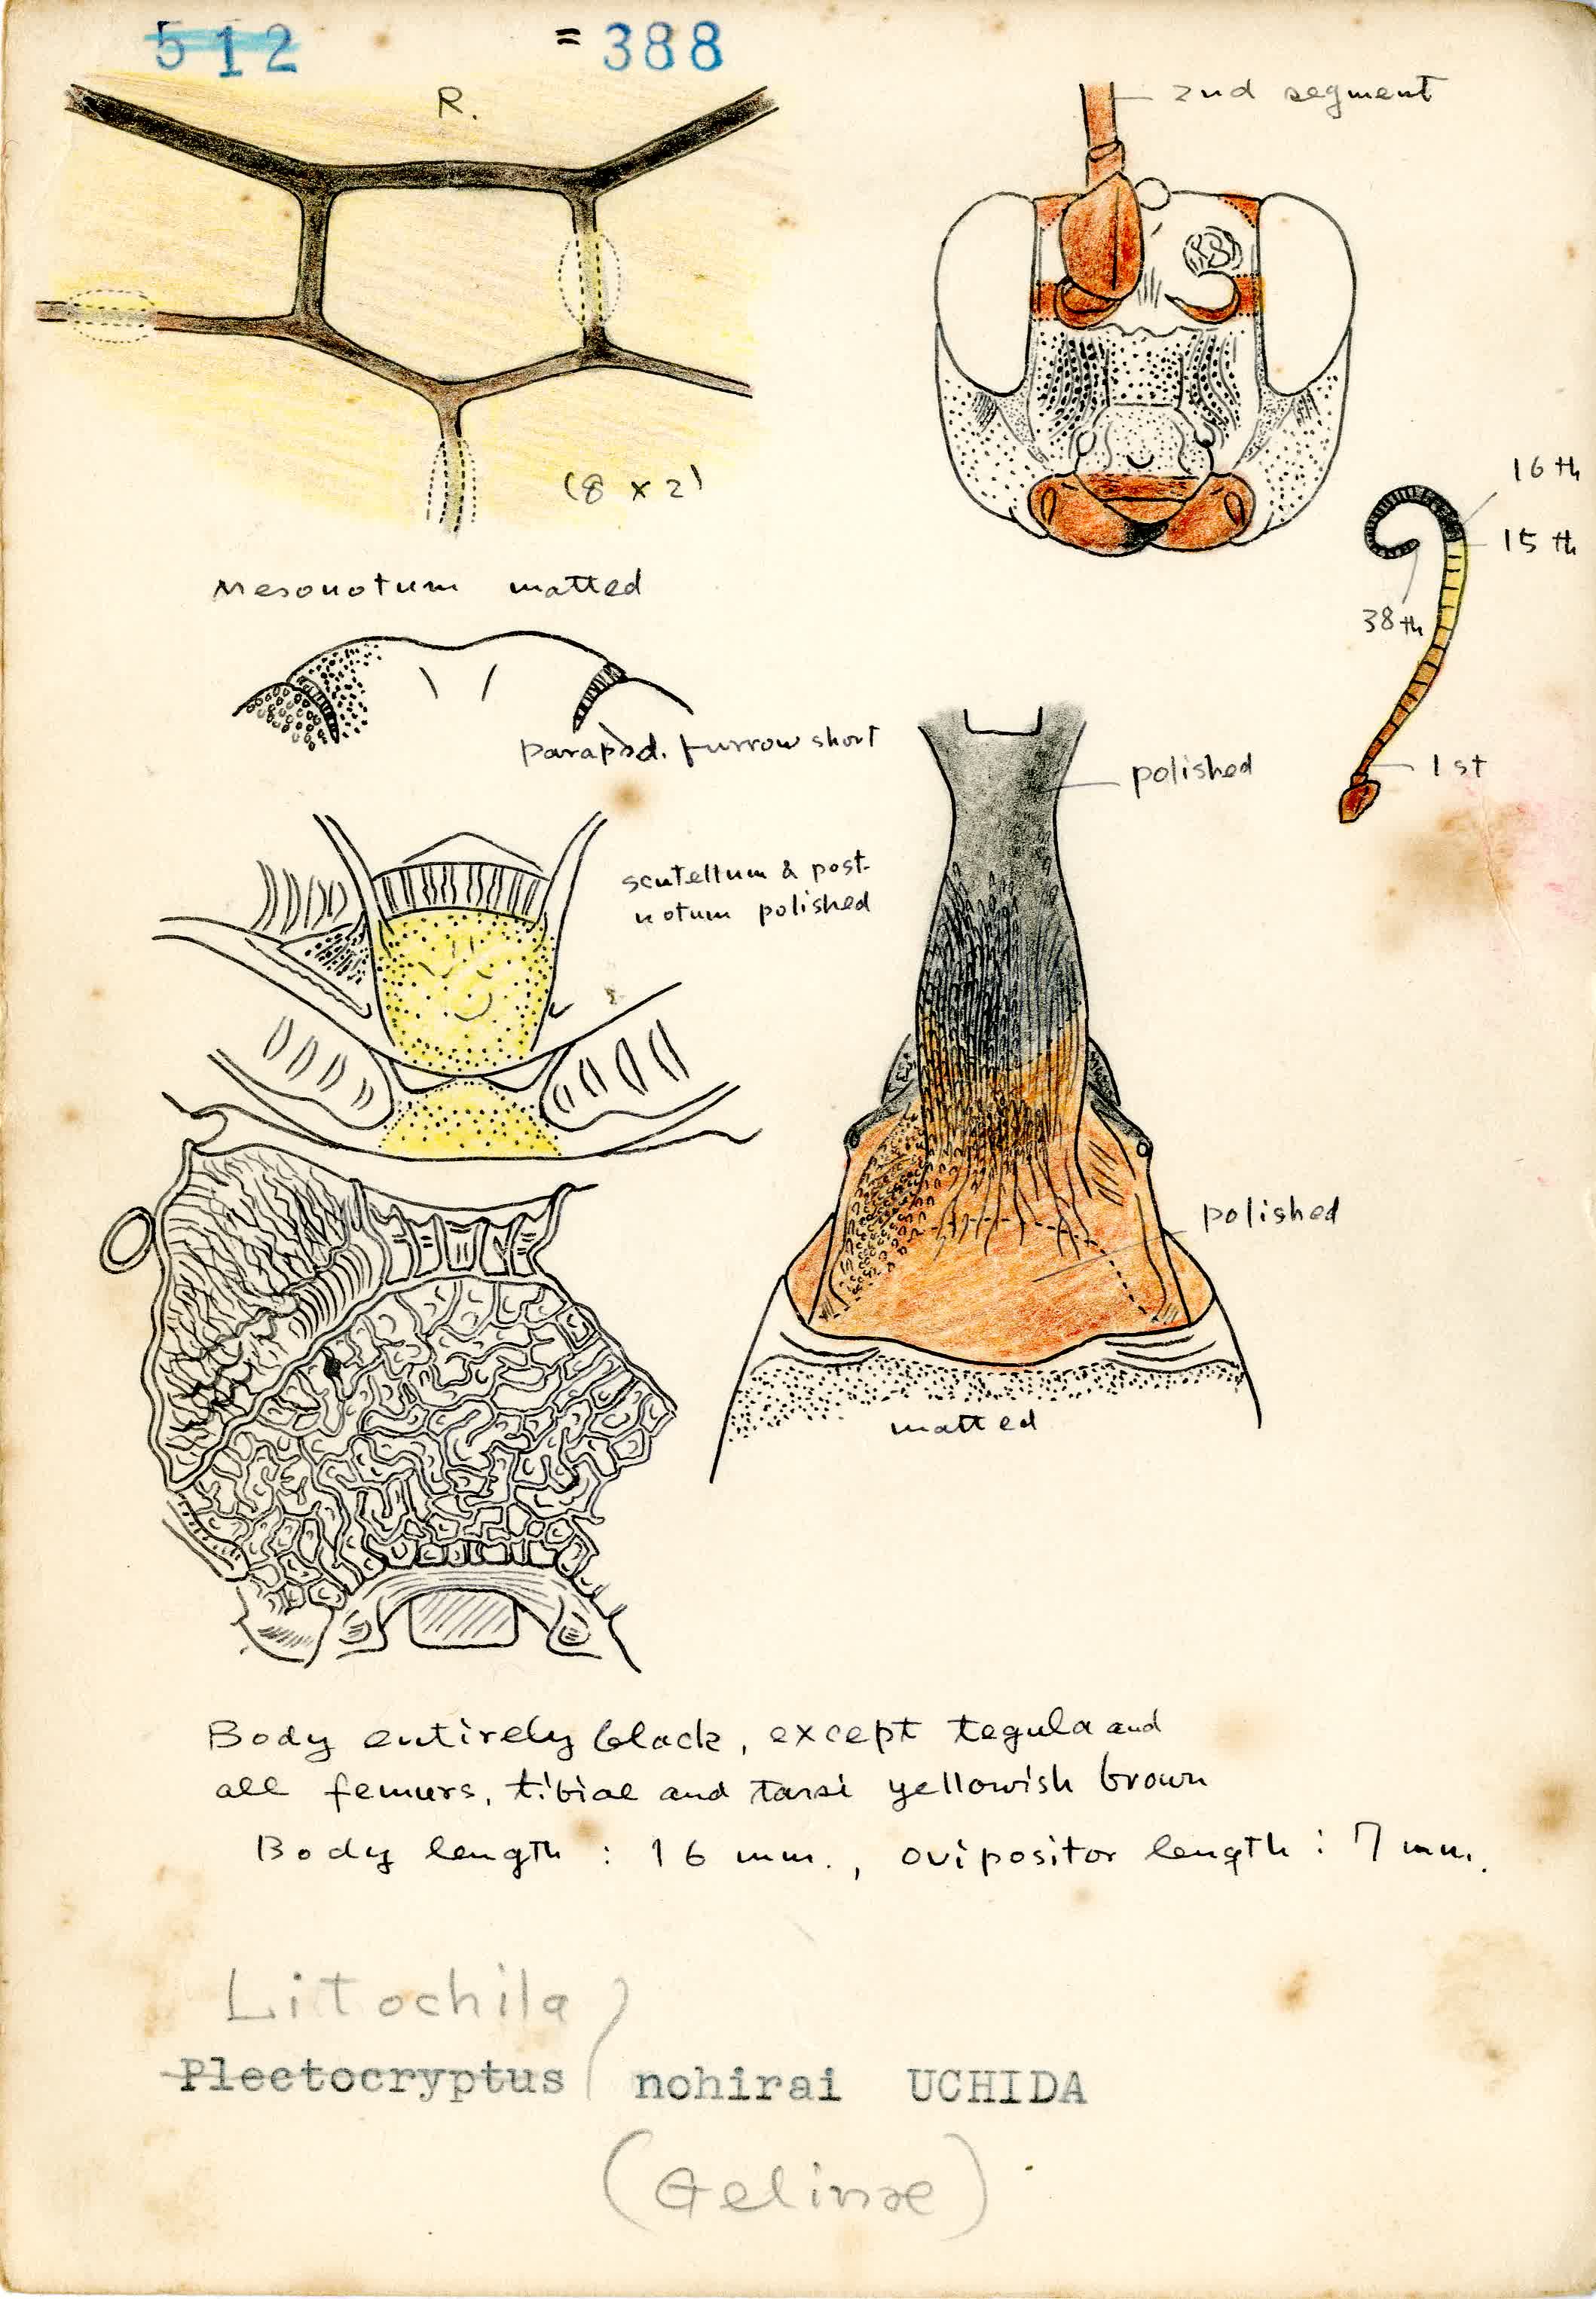 512 = 388
R.
(8 x 2)
2nd segment
16 th
15 th
38 th
1 st
Mesonotum matted
parapsd. furrow short
scutellum & post-
notum polished
polished
polished
matted
Body entirely black, except tegula and
all femurs, tibial and tarsi yellowish brown
Body length : 16 mm., ovipositor length : 7 mm.
Litochila
Plectocryptus nohirai UCHIDA
(Gelinae)